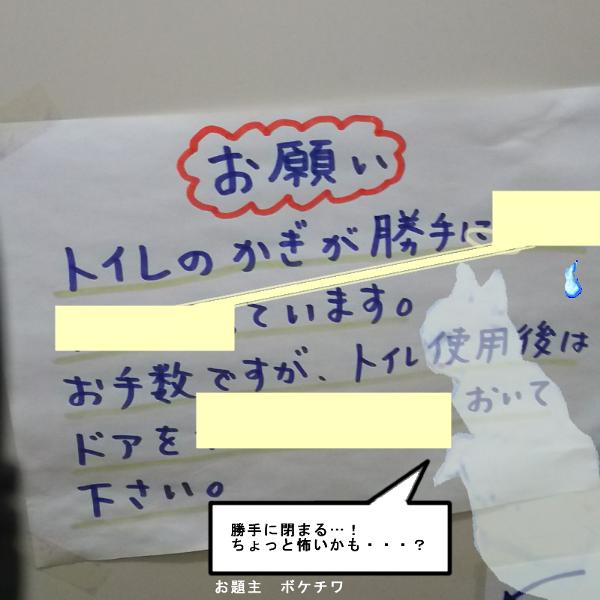 お願い
トイレのかぎが勝手に
ています。
お手数ですが、トイレ使用後は
ドアを おいて
下さい。
勝手に閉まる…!
ちょっと怖いかも・・・?
お題主 ボケチワ